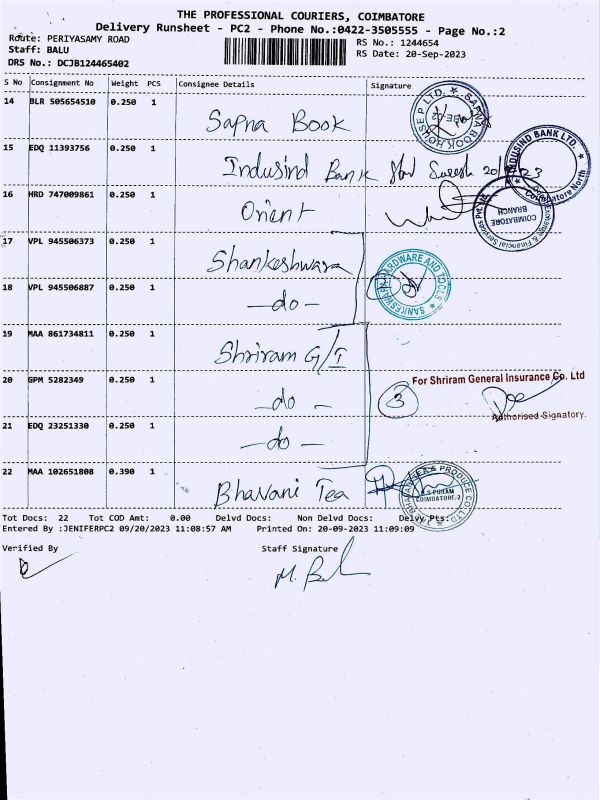 THE PROFESSIONAL COURIERS, COIMBATORE
Delivery Runsheet - PC2 - Phone No.:0422-3505555 - Page No.:2
Route: PERIYASAMY ROAD
Staff: BALU
DRS No.: DCJB124465402
RS No.: 1244654
RS Date: 20-Sep-2023
S No Consignment No Weight PCS Consignee Details Signature
14 BLR 505654510 0.250 1 Sapna Book
SAPNA BOOK HOUSE P LTD.
15 EDQ 11393756 0.250 1 Indusind Bank
INDUSIND BANK LTD.
Coimbatore North
16 HRD 747009861 0.250 1 Orient
Exchange & Financial Services Pvt. Ltd.
COIMBATORE
BRANCH
17 VPL 945506373 0.250 1 Shankeshwara
18 VPL 945506887 0.250 1 -do-
HARDWARE AND TOOLS
19 MAA 861734811 0.250 1 Shriram G/I
20 GPM 5282349 0.250 1 -do-
3
For Shriram General Insurance Co. Ltd
Authorised Signatory.
21 EDQ 23251330 0.250 1 -do-
22 MAA 102651808 0.390 1 Bhavani Tea
R S PURAM
COIMBATORE-2
Tot Docs: 22 Tot COD Amt: 0.00 Delvd Docs: Non Delvd Docs: Delvy Pts:
Entered By :JENIFERPC2 09/20/2023 11:08:57 AM Printed On: 20-09-2023 11:09:09
Verified By Staff Signature